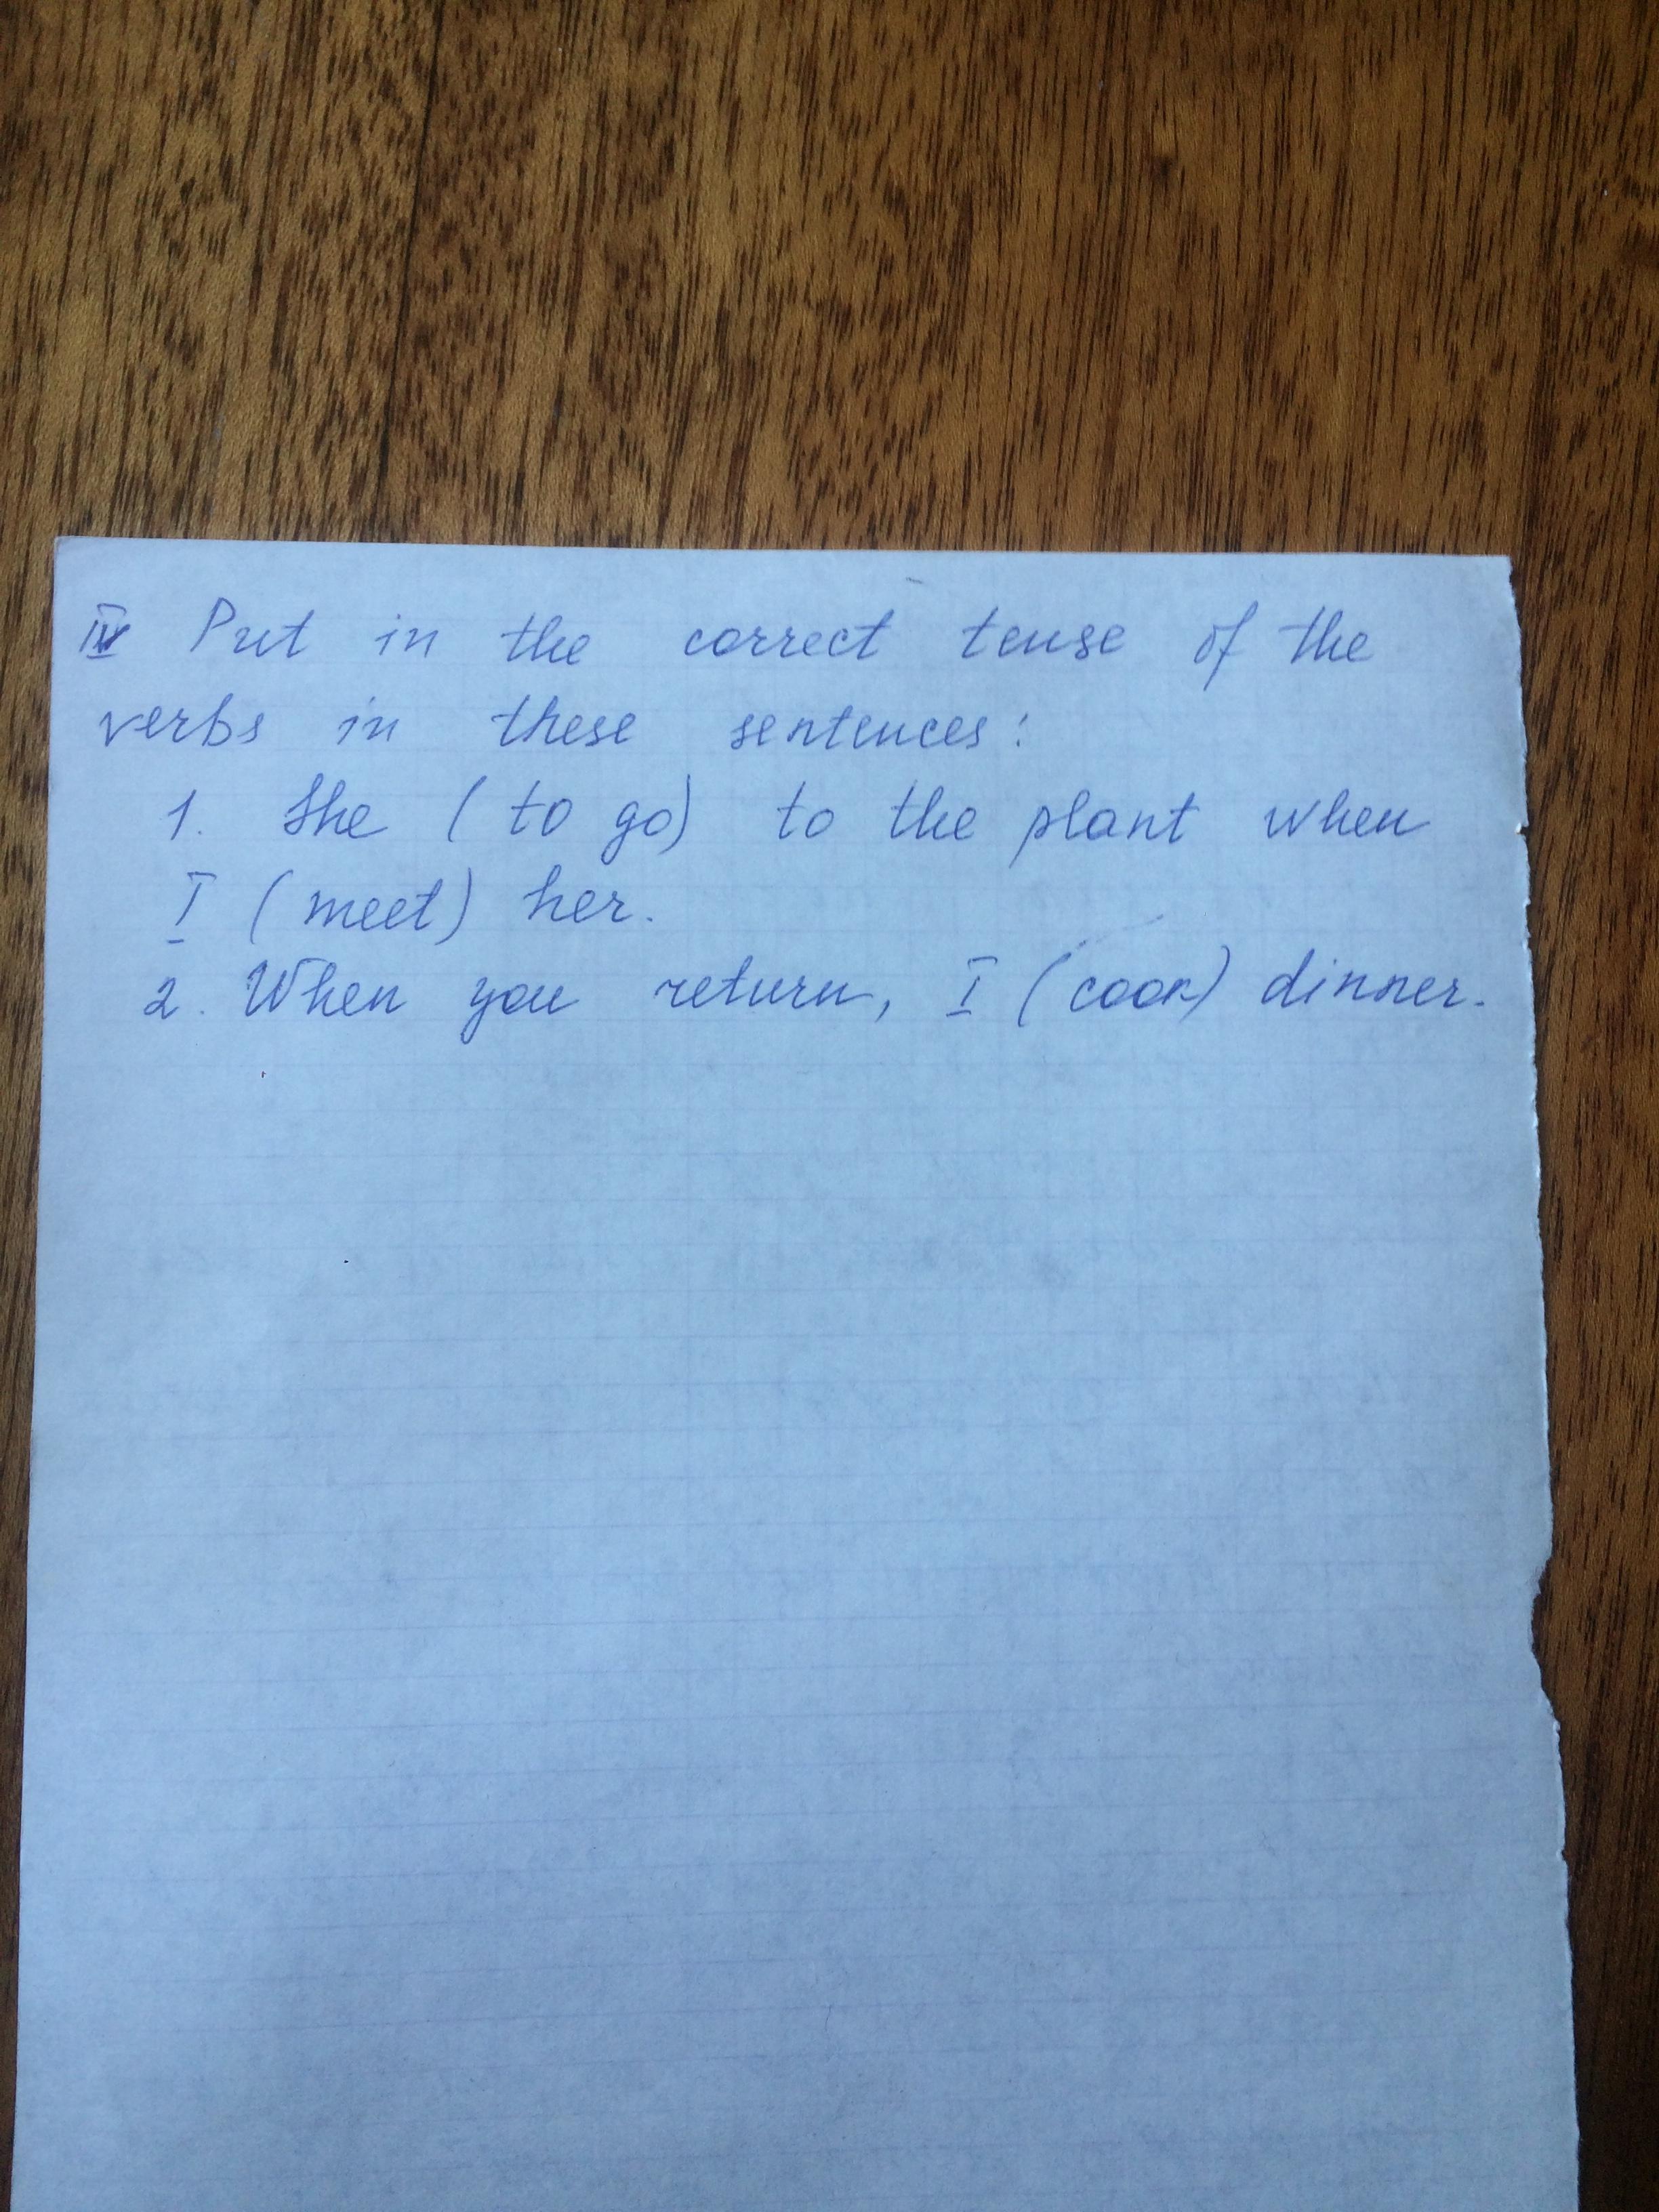 IV Put in the correct tense of the
verbs in these sentences:
1. She (to go) to the plant when
I (meet) her.
2. When you return, I (cook) dinner.